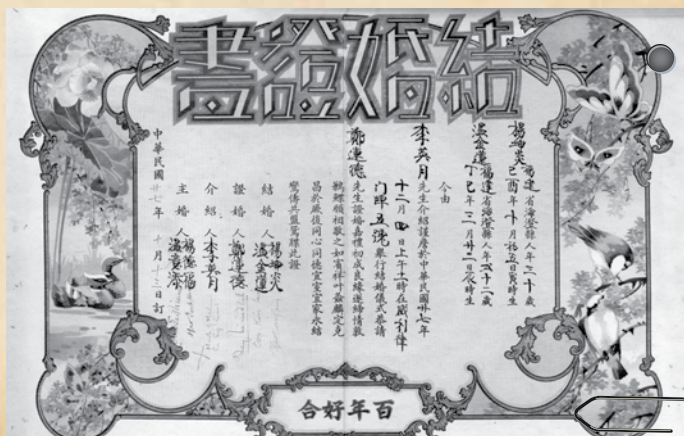 結婚證書
楊炳炎福建省海澄縣人年三十歲
己酉年十月拾五日寅時生
溫金蓮福建省海澄縣人年式十二歲
丁巳年三月廿二日辰時生
今由
李英月先生介紹謹詹於中華民國廿七年
十二月四日上午十一時在
門牌五號舉行結婚儀式恭請
鄭連德先生證婚嘉禮初成良緣遂締情敦
鶼鰈願相敬之如賓祥叶螽麟定克
昌於厥後同心同德宜室宜家永結
鸞儔共盟鴛牒此證
結婚人楊炳炎
溫金蓮
證婚人鄭連德
介紹人李英月
主婚人楊
溫
中華民國廿七年十月十三日訂
百年好合